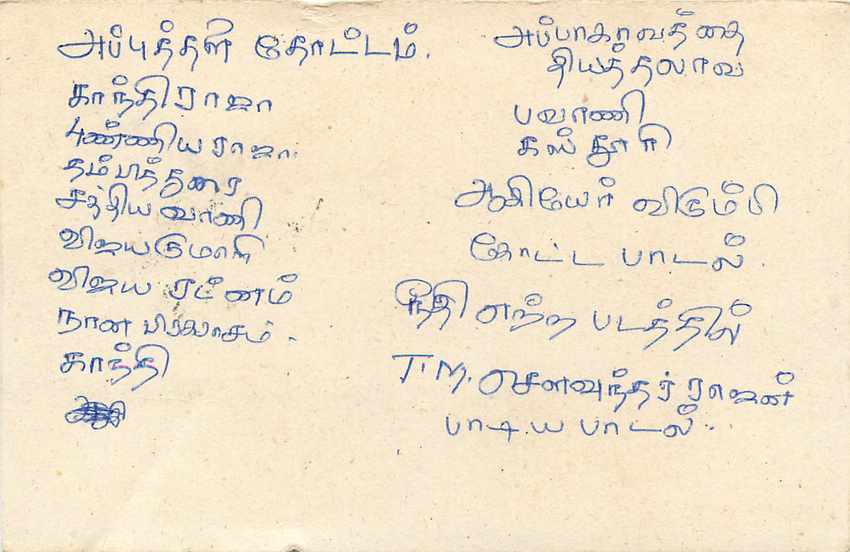 அப்புத்தளை தோட்டம்.
காந்திராஜா
புண்ணியராஜா.
தம்பித்துரை
சத்தியவாணி
விஜயகுமாரி
விஜய ரட்ணம்
நான பிரகாசம்.
காந்தி
தியத்தலாவ
பவானி
கஸ்தூரி
ஆகியோர் விரும்பி
கேட்ட பாடல்.
நீதி என்ற படத்தில்
T.M. சௌவுந்தர்ராஜன்
பாடிய பாடல்.